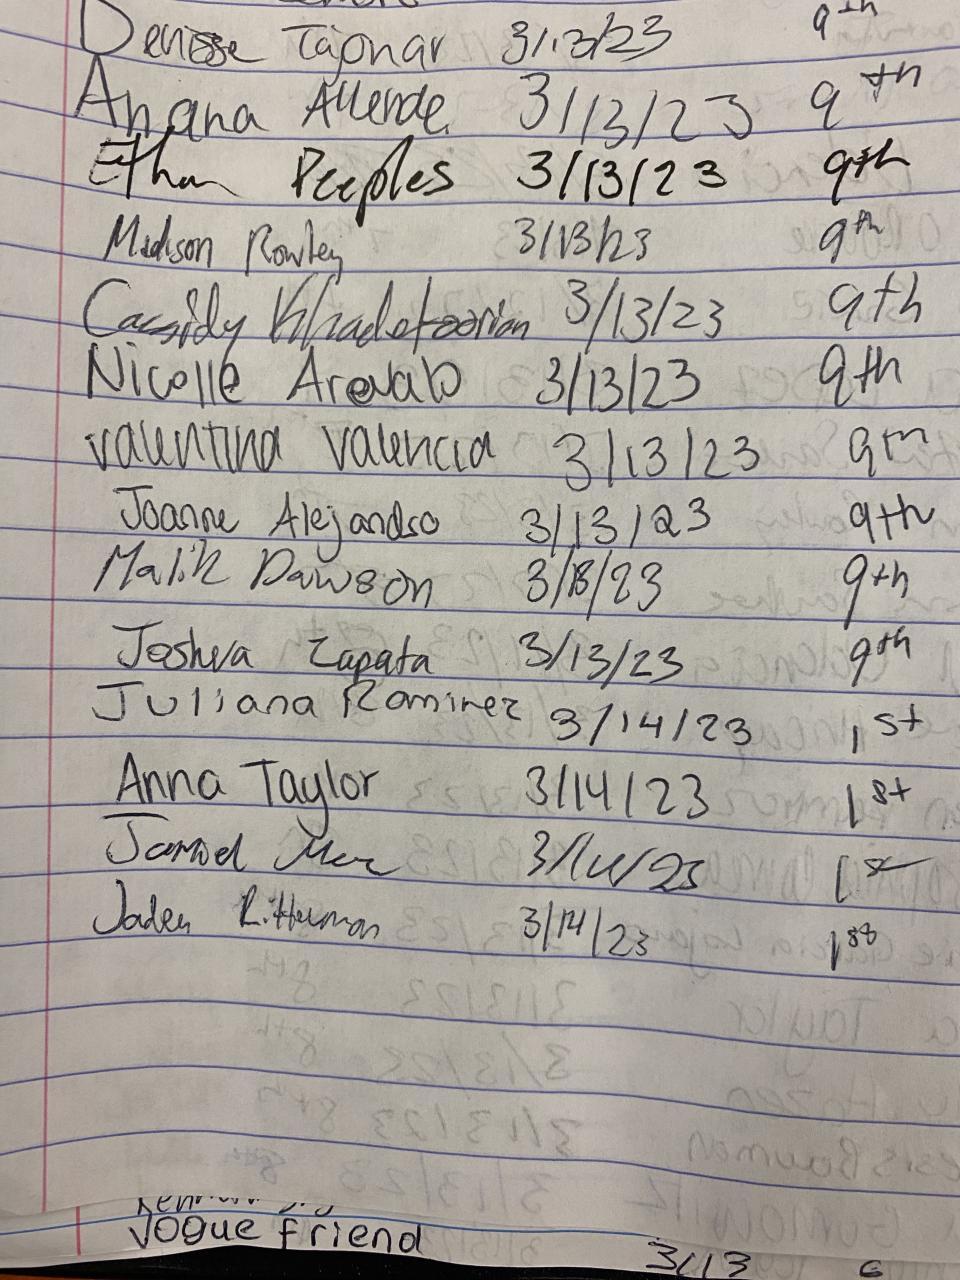 Denisse Tajonar 3/13/23 9th
Anana Allende. 3/13/23 9th
Ethan Peeples 3/13/23 9th
Madison Rowley 3/13/23 9th
Cassidy 3/13/23 9th
Nicolle Arevalo 3/13/23 9th
Valentina Valencia 3/13/23 9th
Joanne Alejandro 3/13/23 9th
Malik Dawson 3/13/23 9th
Joshua Zapata 3/13/23 9th
Juliana Ramirez 3/14/23 1st
Anna Taylor 3/14/23 1st
3/14/23 1st
Jaden Ritterman 3/14/23 1st
Vogue friend 3/13